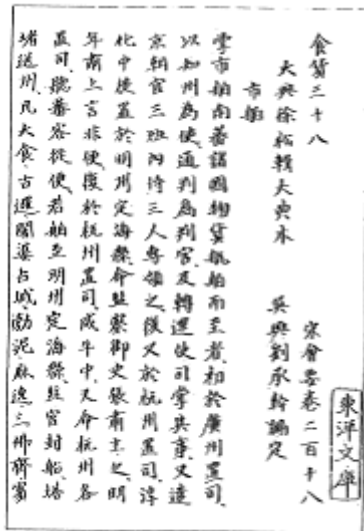 食貨三十八 宋會要卷二百十八
大興徐松輯大典本 吳興劉承幹編定
市舶
掌市舶南蕃諸國物貨航舶而至者初於廣州置司
以知州為使通判為判官及轉運使司掌其事又遣
京朝官三班內侍三人專領之後又於杭州置司淳
化中徙置於明州定海縣命監察御史張肅主之明
年肅上言非便復於杭州置司咸平中又命杭州各
置司聽蕃客從便若舶至明州定海縣監官封船㙮
堵送州凡大食古邏闍婆占城勃泥麻逸三佛齊賓
東洋文庫